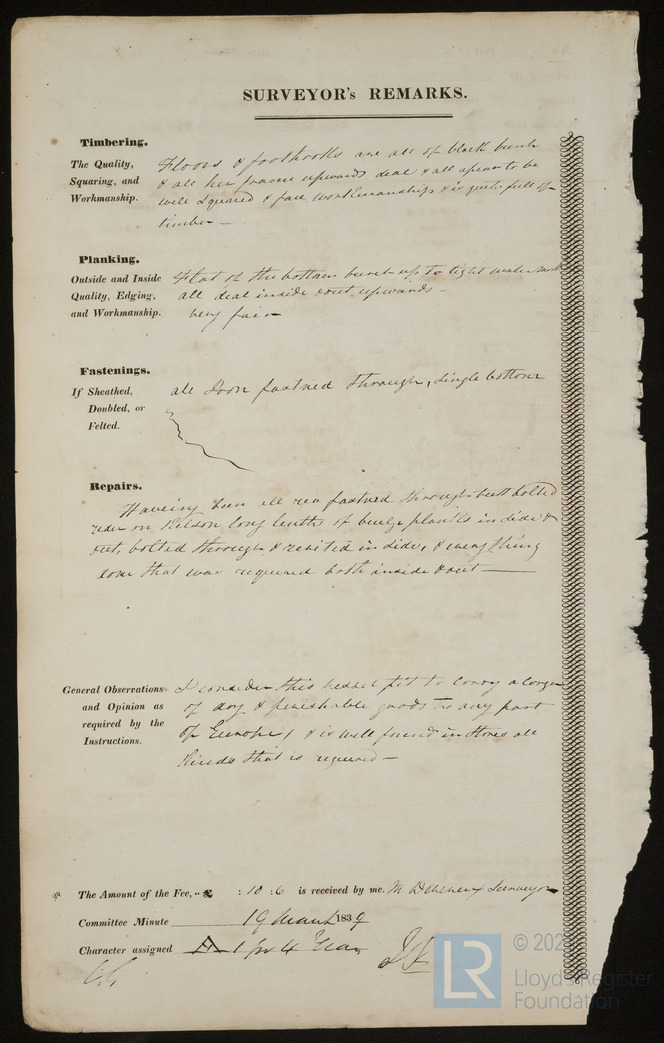 SURVEYOR's REMARKS.
Timbering.
The Quality,
Squaring, and
Workmanship.
Floors & foothooks are all of black burch
& all her frame upwards deal & all apear to be
well Squared & fair workmanship & is quite full of
timber —
Planking.
Outside and Inside
Quality, Edging,
and Workmanship.
Flat of the bottom burch up to light water mark
all deal inside & out upwards —
very fair
Fastenings.
If Sheathed,
Doubled, or
Felted.
all Iron fastned through, single bottom
Repairs.
Haveing been all new fastned through butt bolted
rider on Kelson long lenths of bulge planks in side &
out, bolted through & revited in side, & every thing
done that was required both inside & out —
General Observations
and Opinion as
required by the
Instructions.
I consider this vessel fit to Carry a Cargo
of dry & perishable goods to any part
of Europe, & is well found in Stores all
Kinds that is required —
The Amount of the Fee, .. £ : 10 : 6 is received by me. Surveyor
Committee Minute 19 March 1839
Character assigned A 1 for 4 Years
© 202
LR
Lloyd's Register
Foundation